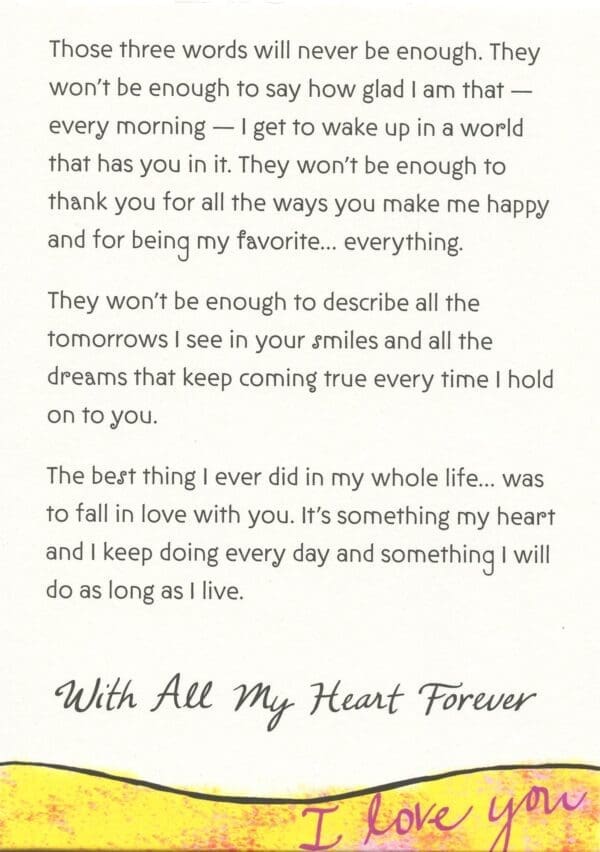 Those three words will never be enough. They
won't be enough to say how glad I am that —
every morning — I get to wake up in a world
that has you in it. They won't be enough to
thank you for all the ways you make me happy
and for being my favorite... everything.
They won't be enough to describe all the
tomorrows I see in your smiles and all the
dreams that keep coming true every time I hold
on to you.
The best thing I ever did in my whole life... was
to fall in love with you. It's something my heart
and I keep doing every day and something I will
do as long as I live.
With All My Heart Forever
I love you